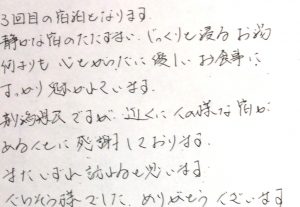 3回目の宿泊となります。
静かな宿のたたずまい、じっくりと浸るお湯
何よりも心とからだに優しいお食事に
すっかり魅かれています。
新潟県民ですが、近くにこの様な宿が
あることに感謝しております。
またいずれ訪れると思います。
ごちそう様でした。ありがとうございます